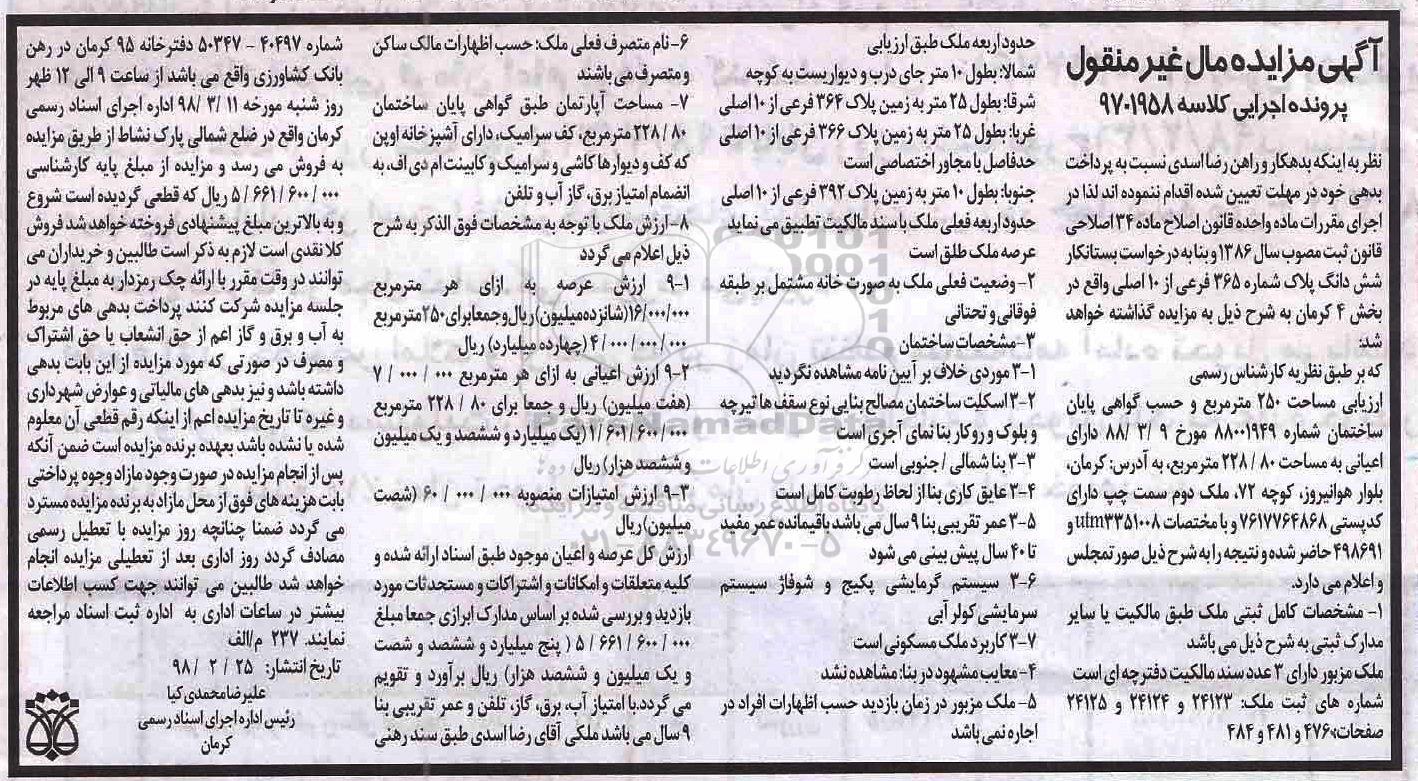 آگهی مزایده مال غیر منقول
پرونده اجرایی کلاسه ۹۷۰۱۹۵۸
نظر به اینکه بدهکار و راهن رضا اسدی نسبت به پرداخت
بدهی خود در مهلت تعیین شده اقدام ننموده اند لذا در
اجرای مقررات ماده واحده قانون اصلاح ماده ۳۴ اصلاحی
قانون ثبت مصوب سال ۱۳۸۶ و بنا به درخواست بستانکار
شش دانگ پلاک شماره ۳۶۵ فرعی از ۱۰ اصلی واقع در
بخش ۴ کرمان به شرح ذیل به مزایده گذاشته خواهد
شد:
که بر طبق نظریه کارشناس رسمی
ارزیابی مساحت ۲۵۰ مترمربع و حسب گواهی پایان
ساختمان شماره ۸۸۰۰۱۹۴۹ مورخ ۹ /۳ /۸۸ دارای
اعیانی به مساحت ۸۰ / ۲۲۸ مترمربع، به آدرس: کرمان،
بلوار هوانیروز، کوچه ۷۲، ملک دوم سمت چپ دارای
کدپستی ۷۶۱۷۷۶۴۸۶۸ و با مختصات utm۳۳۵۱۰۰۸ و
۴۹۸۶۹۱ حاضر شده و نتیجه را به شرح ذیل صورتمجلس
و اعلام می دارد.
۱- مشخصات کامل ثبتی ملک طبق مالکیت یا سایر
مدارک ثبتی به شرح ذیل می باشد
ملک مزبور دارای ۳ عدد سند مالکیت دفترچه ای است
شماره های ثبت ملک: ۲۴۱۲۳ و ۲۴۱۲۴ و ۲۴۱۲۵
صفحات: ۴۷۶ و ۴۸۱ و ۴۸۴
حدود اربعه ملک طبق ارزیابی
شمالا: بطول ۱۰ متر جای درب و دیواریست به کوچه
شرقا: بطول ۲۵ متر به زمین پلاک ۳۶۴ فرعی از ۱۰ اصلی
غربا: بطول ۲۵ متر به زمین پلاک ۳۶۶ فرعی از ۱۰ اصلی
حدفاصل با مجاور اختصاصی است
جنوبا: بطول ۱۰ متر به زمین پلاک ۳۹۲ فرعی از ۱۰ اصلی
حدود اربعه فعلی ملک با سند مالکیت تطبیق می نماید
عرصه ملک طلق است
۲- وضعیت فعلی ملک به صورت خانه مشتمل بر طبقه
فوقانی و تحتانی
۳- مشخصات ساختمان
۳-۱ موردی خلاف بر آیین نامه مشاهده نگردید
۳-۲ اسکلت ساختمان مصالح بنایی نوع سقف ها تیرچه
و بلوک و روکار بنا نمای آجری است
۳-۳ بنا شمالی / جنوبی است
۳-۴ عایق کاری بنا از لحاظ رطوبت کامل است
۳-۵ عمر تقریبی بنا ۹ سال می باشد باقیمانده عمر مفید
تا ۴۰ سال پیش بینی می شود
۳-۶ سیستم گرمایشی پکیج و شوفاژ سیستم
سرمایشی کولر آبی
۳-۷ کاربرد ملک مسکونی است
۴- معایب مشهود در بنا: مشاهده نشد
۵- ملک مزبور در زمان بازدید حسب اظهارات افراد در
اجاره نمی باشد
۶- نام متصرف فعلی ملک: حسب اظهارات مالک ساکن
و متصرف می باشند
۷- مساحت آپارتمان طبق گواهی پایان ساختمان
۸۰ / ۲۲۸ مترمربع، کف سرامیک، دارای آشپزخانه اوپن
که کف و دیوارها کاشی و سرامیک و کابینت ام دی اف، به
انضمام امتیاز برق، گاز آب و تلفن
۸- ارزش ملک با توجه به مشخصات فوق الذکر به شرح
ذیل اعلام می گردد
۹-۱ ارزش عرصه به ازای هر مترمربع
۱۶/۰۰۰/۰۰۰ (شانزده میلیون) ریال و جمعا برای ۲۵۰ مترمربع
۴/۰۰۰/۰۰۰/۰۰۰ (چهارده میلیارد) ریال
۹-۲ ارزش اعیانی به ازای هر مترمربع ۰۰۰ / ۰۰۰ / ۷
(هفت میلیون) ریال و جمعا برای ۸۰ / ۲۲۸ مترمربع
۱/۶۰۱/۶۰۰/۰۰۰ (یک میلیارد و ششصد و یک میلیون
و ششصد هزار) ریال
۹-۳ ارزش امتیازات منصوبه ۰۰۰ / ۰۰۰ / ۶۰ (شصت
میلیون) ریال
ارزش کل عرصه و اعیان موجود طبق اسناد ارائه شده و
کلیه متعلقات و امکانات و اشتراکات و مستحدثات مورد
بازدید و بررسی شده بر اساس مدارک ابرازی جمعا مبلغ
۵/۶۶۱/۶۰۰/۰۰۰ ( پنج میلیارد و ششصد و شصت
و یک میلیون و ششصد هزار) ریال برآورد و تقویم
می گردد. با امتیاز آب، برق، گاز، تلفن و عمر تقریبی بنا
۹ سال می باشد ملکی آقای رضا اسدی طبق سند رهنی
شماره ۴۰۴۹۷ - ۵۰۳۴۷ دفترخانه ۹۵ کرمان در رهن
بانک کشاورزی واقع می باشد از ساعت ۹ الی ۱۲ ظهر
روز شنبه مورخه ۱۱ /۳ /۹۸ اداره اجرای اسناد رسمی
کرمان واقع در ضلع شمالی پارک نشاط از طریق مزایده
به فروش می رسد و مزایده از مبلغ پایه کارشناسی
۵/۶۶۱/۶۰۰/۰۰۰ ریال که قطعی گردیده است شروع
و به بالاترین مبلغ پیشنهادی فروخته خواهد شد فروش
کلا نقدی است لازم به ذکر است طالبین و خریداران می
توانند در وقت مقرر با ارائه چک رمزدار به مبلغ پایه در
جلسه مزایده شرکت کنند پرداخت بدهی های مربوط
به آب و برق و گاز اعم از حق انشعاب یا حق اشتراک
و مصرف در صورتی که مورد مزایده از این بابت بدهی
داشته باشد و نیز بدهی های مالیاتی و عوارض شهرداری
و غیره تا تاریخ مزایده اعم از اینکه رقم قطعی آن معلوم
شده یا نشده باشد بعهده برنده مزایده است ضمن آنکه
پس از انجام مزایده در صورت وجود مازاد وجوه پرداختی
بابت هزینه های فوق از محل مازاد به برنده مزایده مسترد
می گردد ضمنا چنانچه روز مزایده با تعطیل رسمی
مصادف گردد روز اداری بعد از تعطیلی مزایده انجام
خواهد شد طالبین می توانند جهت کسب اطلاعات
بیشتر در ساعات اداری به اداره ثبت اسناد مراجعه
نمایند. ۲۳۷ م/الف
تاریخ انتشار: ۲۵ / ۲ / ۹۸
علیرضا محمدی کیا
رئیس اداره اجرای اسناد رسمی
کرمان
ParsNamadData
۰۲۱-۸۸۳۴۹۶۷۰-۵